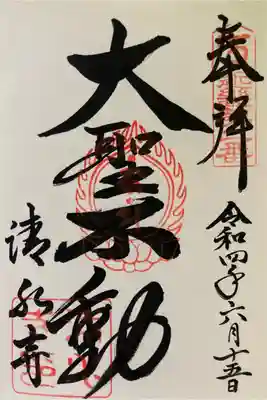 奉拝
令和四年六月十五日
大聖不動
清水寺